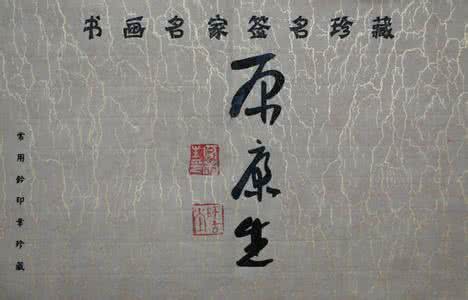 书画名家签名珍藏
原康生
常用钤印章珍藏